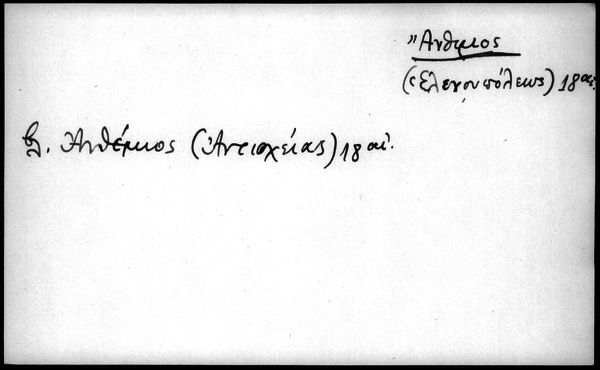 Ἄνθιμος
(Ἑλενουπόλεως) 18 αἰ.
β. Ἀνθέμιος (Ἀντιοχείας) 18 αἰ.